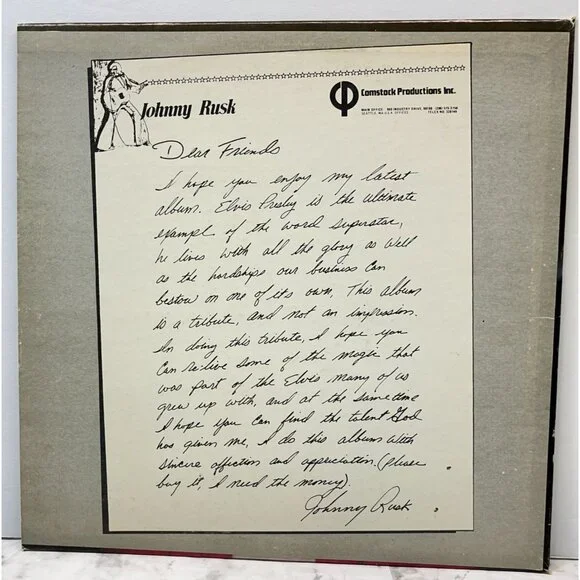 Johnny Rusk
Comstock Productions Inc.
MAIN OFFICE
SEATTLE, WA U.S.A. OFFICES
Dear Friends
I hope you enjoy my latest
album. Elvis Presley is the ultimate
exampl of the word superstar,
he lives with all the glory as well
as the hardships our business can
bestow on one of its own. This album
is a tribute, and not an impression.
In doing this tribute, I hope you
can re-live some of the magic that
was part of the Elvis many of us
grew up with, and at the same time
I hope you can find the talent God
has given me, I do this album with
sincere affection and appreciation. (please
buy it, I need the money).
Johnny Rusk